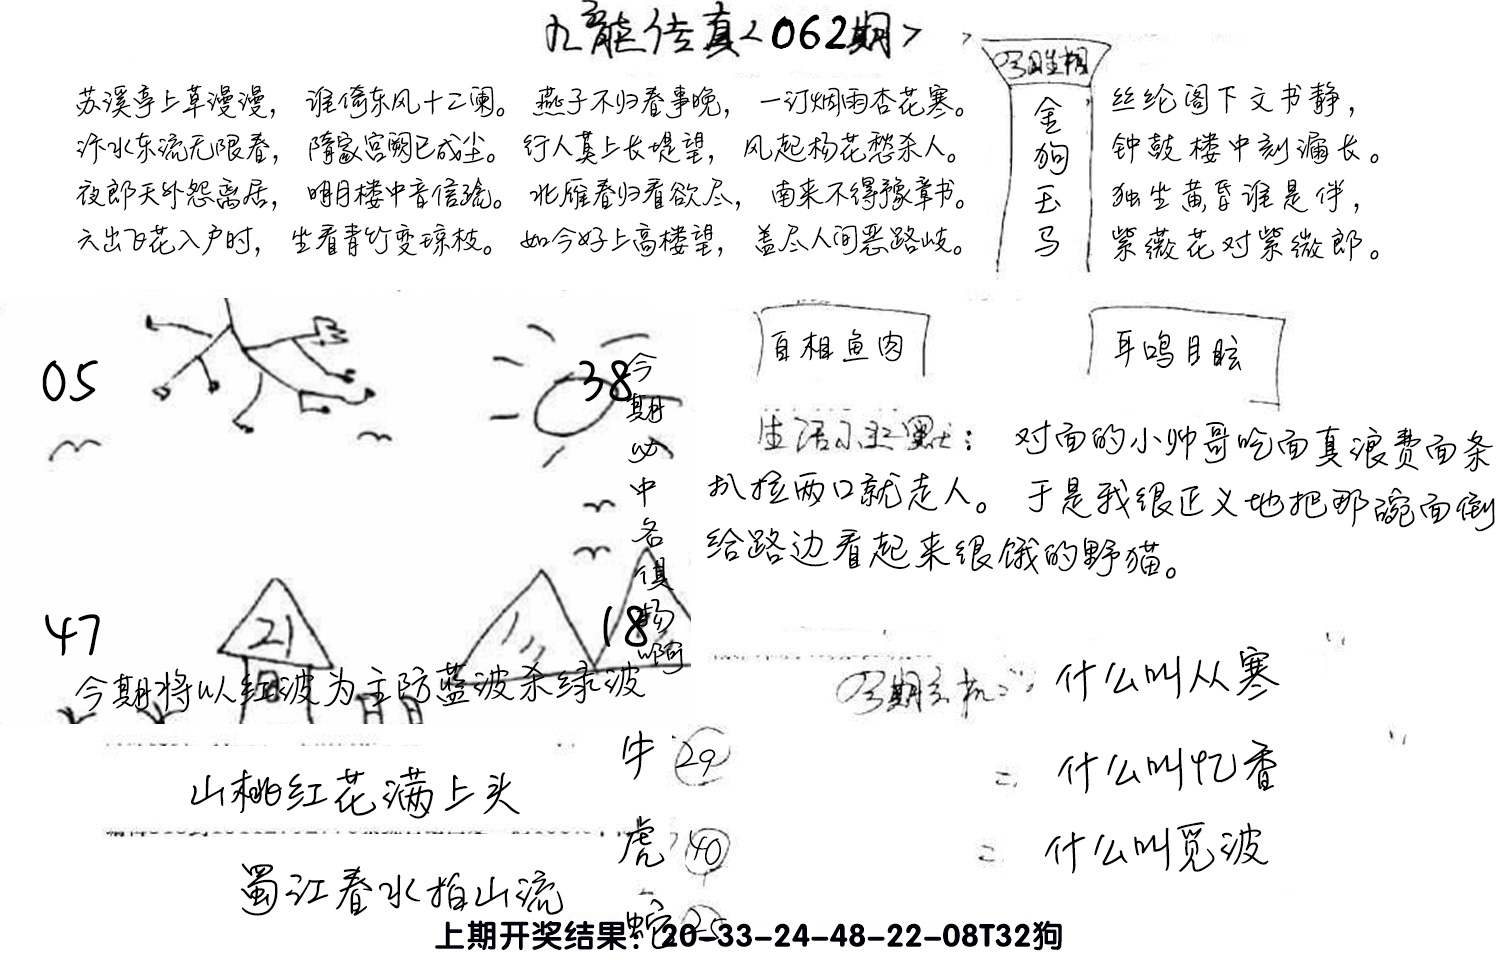 九龙传真<062期>
苏溪亭上草漫漫，谁倚东风十二阑。燕子不归春事晚，一汀烟雨杏花寒。
汴水东流无限春，隋家宫阙已成尘。行人莫上长堤望，风起杨花愁杀人。
夜郎天外怨离居，明月楼中音信疏。北雁春归看欲尽，南来不得豫章书。
六出飞花入户时，坐看青竹变琼枝。如今好上高楼望，盖尽人间恶路岐。
今日生相
金
狗
玉
马
丝纶阁下文书静，
钟鼓楼中刻漏长。
独坐黄昏谁是伴，
紫薇花对紫微郎。
05
38
47
18
21
今
期
必
中
各
俱
杨
啊
今期将以红波为主防蓝波杀绿波
自相鱼肉
耳鸣目眩
生活小幽默：对面的小帅哥吃面真浪费面条
扒拉两口就走人。于是我很正义地把那碗面倒
给路边看起来很饿的野猫。
今期玄机：什么叫从寒
=什么叫忆香
=什么叫觅波
山桃红花满上头
蜀江春水拍山流
牛29
虎40
蛇25
上期开奖结果：20-33-24-48-22-08T32狗